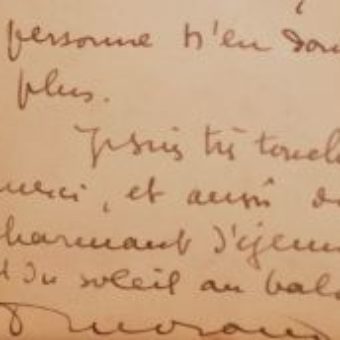 personne n'en dou
plus.
Je suis très touch
merci, et aussi d
harmant déjeun
du soleil au balc